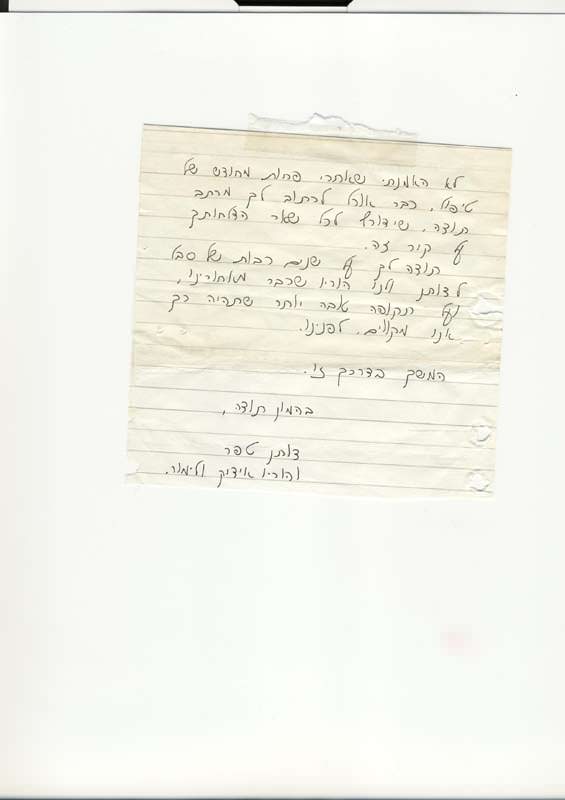 לא האמנתי שאחרי פחות מחודש של
טיפול, כבר אוכל לכתוב לך מכתב
תודה, שידורג לכל שאר הצלחותך
על קיר זה.
תודה לך על שנים רבות של סבל
לדותן ולנו הוריו שכבר מאחורינו,
ועל תקופה טובה יותר שתהיה כך
אנו מקווים, לפנינו.
המשך בדרכך זו.
בהמון תודה,
דותן טפר
והוריו איציק ולימור.